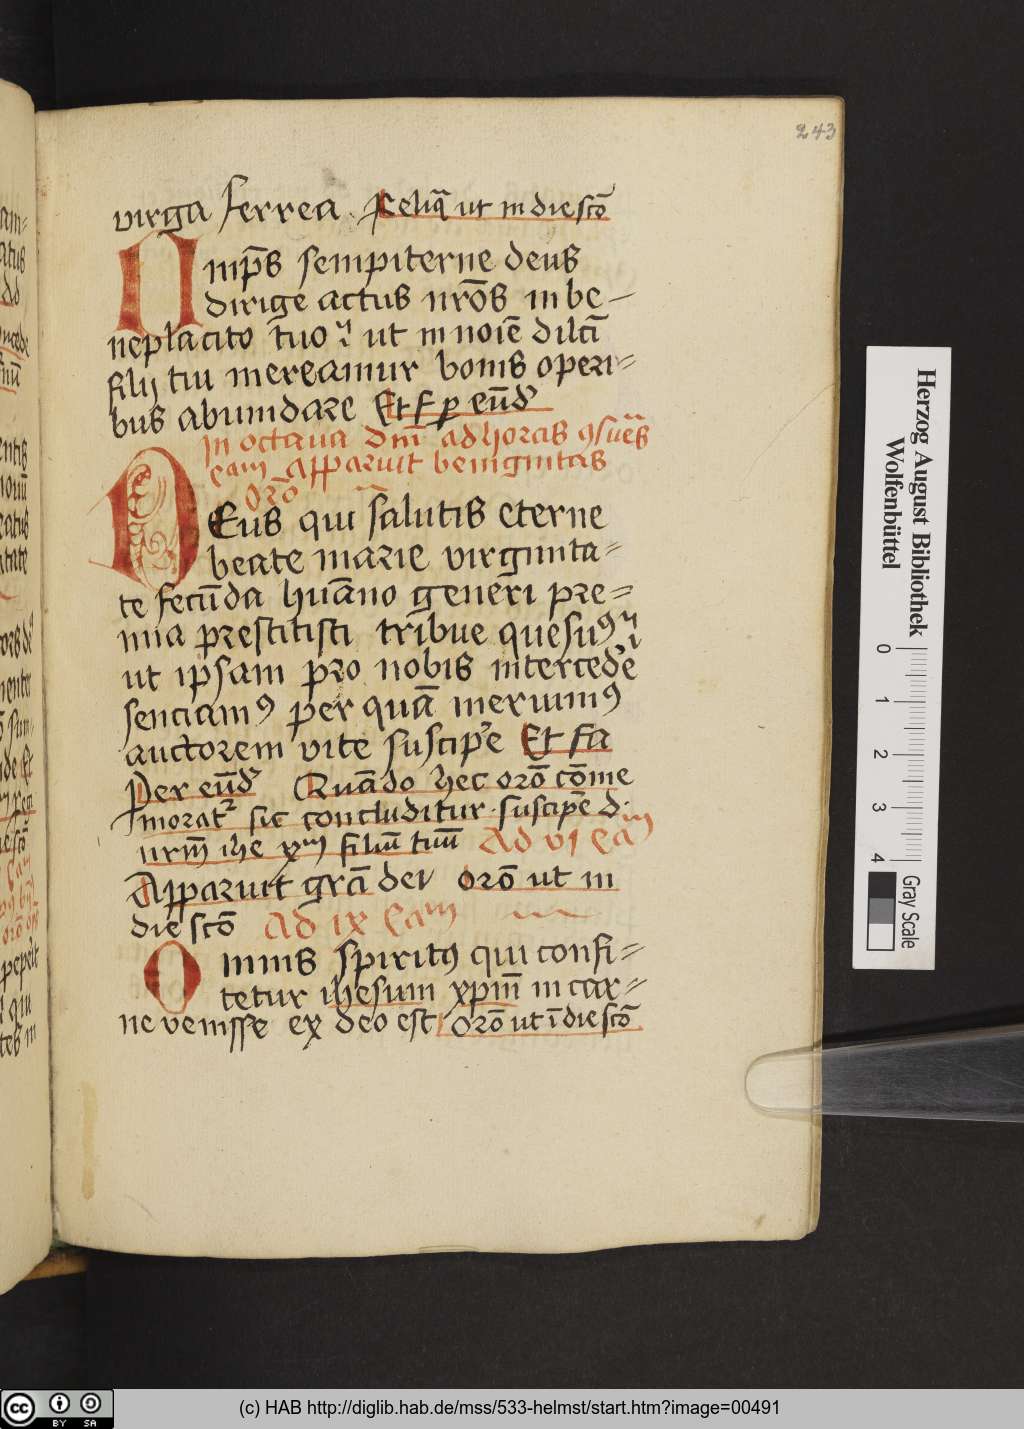 243
virga ferrea. Reliq̄ ut in die scō
Omp̄s sempiterne deus
dirige actus nr̄os in be-
neplacito tuo ut in noiē dilcī
filij tui mereamur bonis operi=
bus abundare Et f p eūd
In octaua dn̄i ad horas
eam apparuit benignitas
orō
DEus qui salutis eterne
beate marie virginita=
te fecūda huāno generi pre=
mia prestitisti tribue quesuꝰ
ut ipsam pro nobis intercede
senciamꝰ per quā meruimꝰ
auctorem vite suscipe Et fa
Per eūd Quādo hec orō cōme
morat sic concluditur suscipe d.
nrm̄ ihe xp̄m filiū tuū Ad vj eam
Apparuit grā dei orō ut in
die scō Ad ix eam
Omnis spiritꝰ qui confi=
tetur ihesum xpm̄ in car=
ne venisse ex deo est orō ut ī die scō
Herzog August Bibliothek
Wolfenbüttel
0 1 2 3 4
Gray Scale
cc BY SA
(c) HAB http://diglib.hab.de/mss/533-helmst/start.htm?image=00491